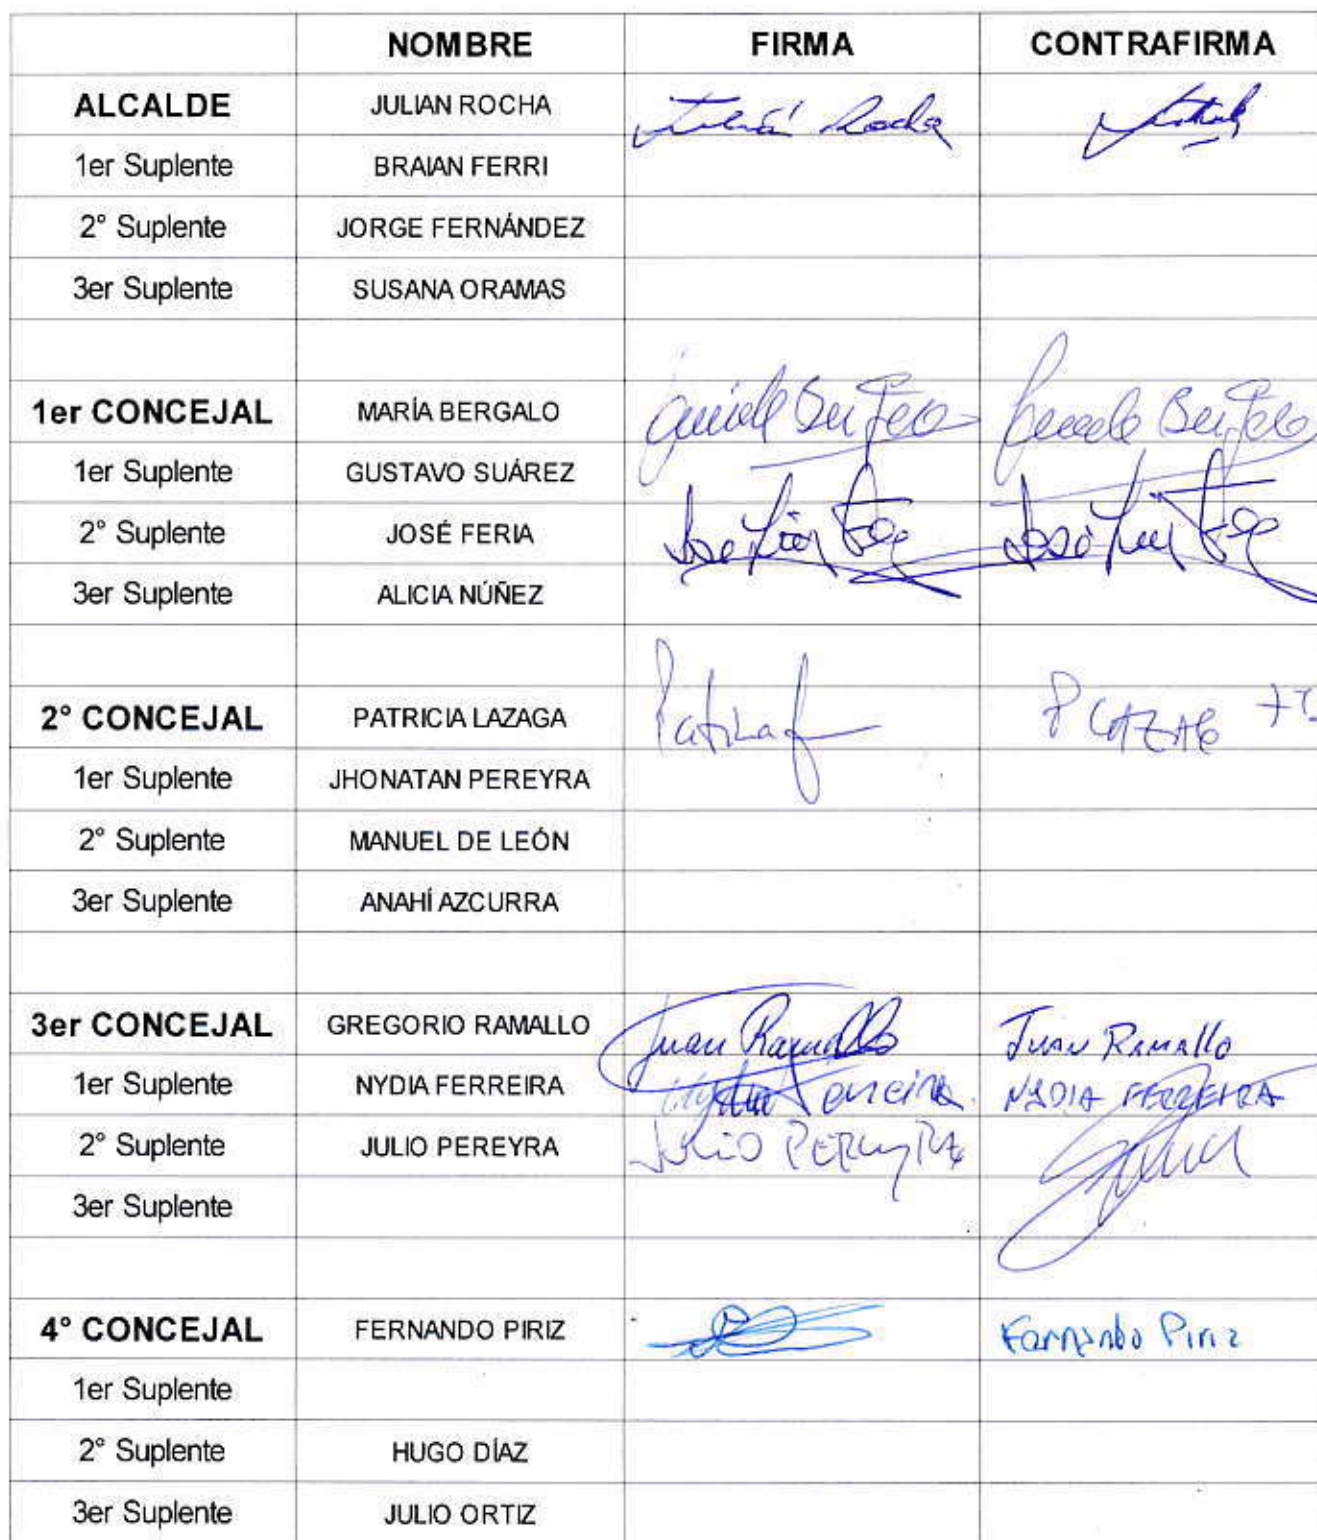 NOMBRE FIRMA CONTRAFIRMA
ALCALDE JULIAN ROCHA Julián Rocha
1er Suplente BRAIAN FERRI
2° Suplente JORGE FERNÁNDEZ
3er Suplente SUSANA ORAMAS
1er CONCEJAL MARÍA BERGALO
1er Suplente GUSTAVO SUÁREZ
2° Suplente JOSÉ FERIA
3er Suplente ALICIA NÚÑEZ
2° CONCEJAL PATRICIA LAZAGA
1er Suplente JHONATAN PEREYRA
2° Suplente MANUEL DE LEÓN
3er Suplente ANAHÍ AZCURRA
3er CONCEJAL GREGORIO RAMALLO Juan Ramallo JUAN RAMALLO
1er Suplente NYDIA FERREIRA Nydia Ferreira NYDIA FERREIRA
2° Suplente JULIO PEREYRA JULIO PEREYRA
3er Suplente
4° CONCEJAL FERNANDO PIRIZ Fernando Piriz
1er Suplente
2° Suplente HUGO DÍAZ
3er Suplente JULIO ORTIZ